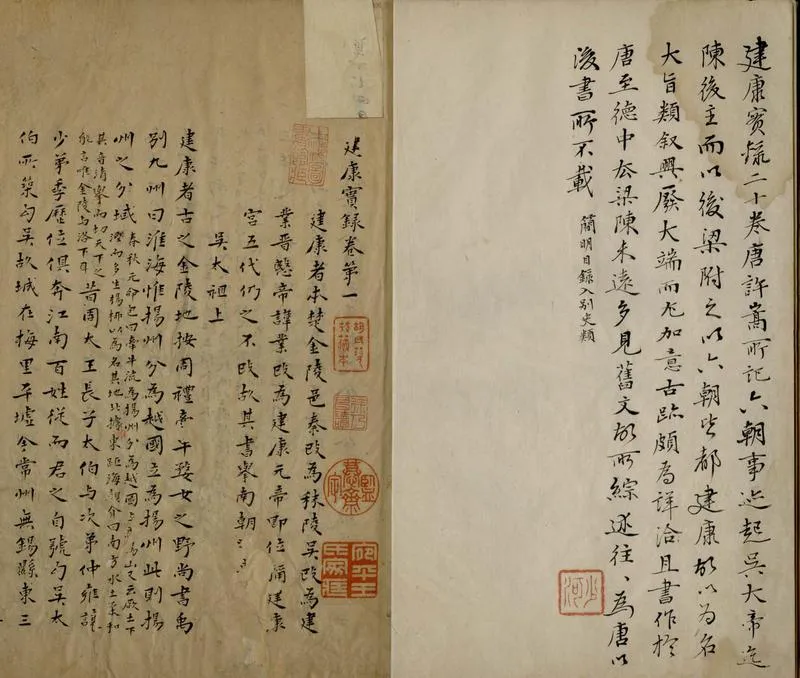 建康實錄二十卷唐許嵩所記六朝事迹起吳大帝迄
陳後主而以後梁附之以六朝皆都建康故以為名
大旨類叙興廢大端而尤加意古跡頗為詳洽且書作於
唐至德中去梁陳未遠多見舊文故所綜述往〻為唐以
後書所不載 簡明目錄入別史類
少河
建康實錄卷第一
建康者本楚金陵邑秦改為秣陵吳改為建
業晉愍帝諱業改為建康元帝即位稱建康
宮五代仍之不改故其書舉南朝
吳太祖上
建康者古之金陵地按周禮牽牛婺女之野尚書禹
別九州曰淮海惟揚州分為越國立為揚州此則揚
州之分域 春秋元命包曰牽牛流為揚州分為越國
其地北據淮東距海
昔周太王長子太伯与次弟仲雍讓
少弟季歷位俱奔江南百姓從而君之自號勾吳太
伯所築勾吳故城在梅里平墟今常州無錫縣東三